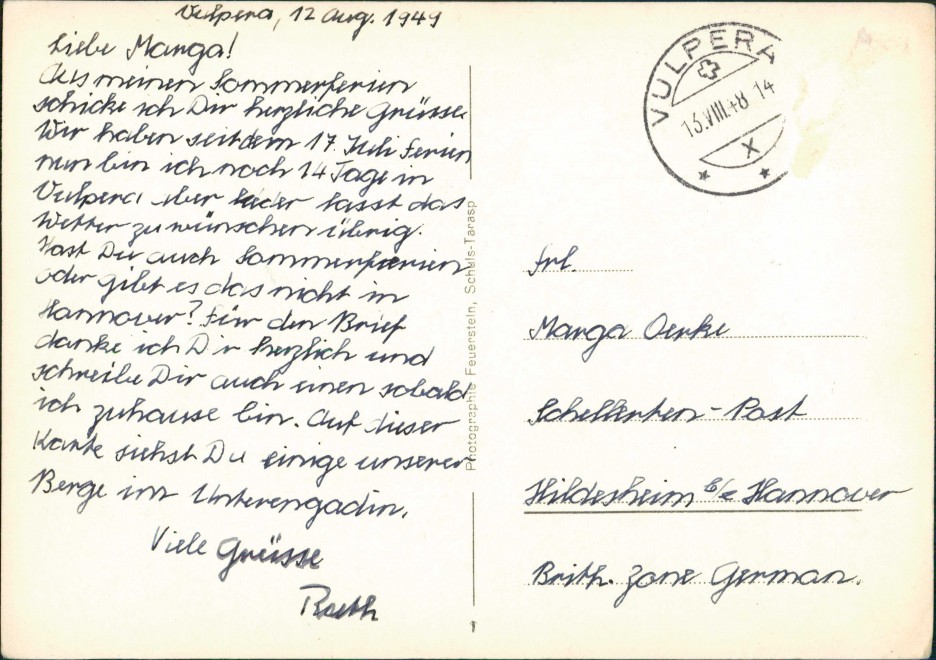 Vulpera, 12 Aug. 1949
Liebe Marga!
Aus meinen Sommerferien
schicke ich Dir herzliche Grüsse
Wir haben seit dem 17. Juli Ferien
nun bin ich noch 14 Tage in
Vulpera aber leider lässt das
Wetter zu wünschen übrig.
Hast Du auch Sommerferien
oder gibt es das nicht in
Hannover? Für den Brief
danke ich Dir herzlich und
schreibe Dir auch einen sobald
ich zuhause bin. Auf dieser
Karte siehst Du einige unserer
Berge im Unterengadin.
Viele Grüsse
Ruth
Photographie Feuerstein, Schuls-Tarasp
VULPERA
13.VIII.48 14
X
Frl.
Marga Oerke
Schellerten-Post
Hildesheim b/e Hannover
Brith. Zone German.